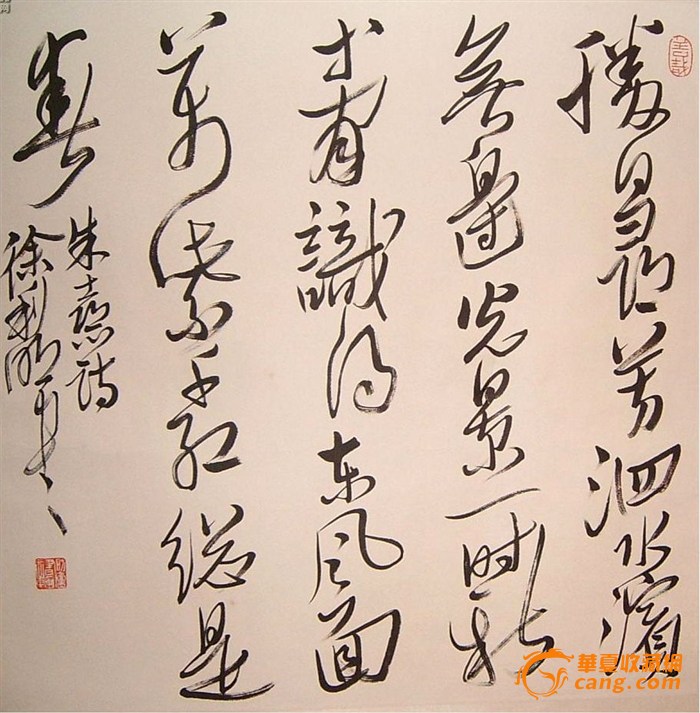 勝日尋芳泗水濱
無邊光景一時新
等閒識得東風面
萬紫千紅總是
春
朱熹詩
徐利明書
華夏收藏網
cang.com